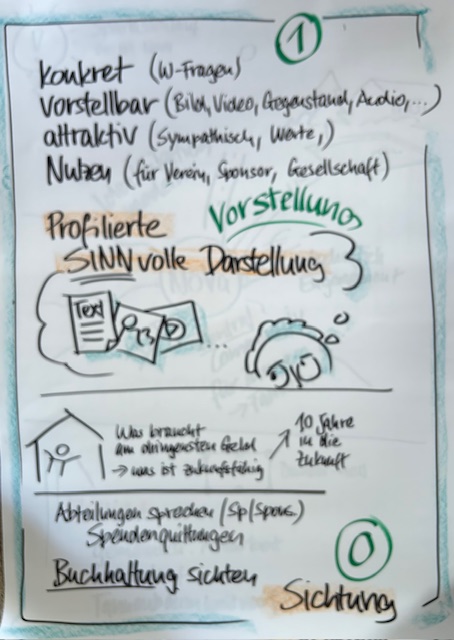 1
konkret (W-Fragen)
vorstellbar (Bild, Video, Gegenstand, Audio,...)
attraktiv (Sympathisch, Werte,)
Nutzen (für Verein, Sponsor, Gesellschaft)
Vorstellung
Profilierte
SINNvolle Darstellung
Text
...
Was braucht
am dringensten Geld
→ was ist zukunftsfähig
10 Jahre
in die
Zukunft
Abteilungen sprechen (Sp/Spons.)
Spendenquittungen
Buchhaltung sichten
0
Sichtung